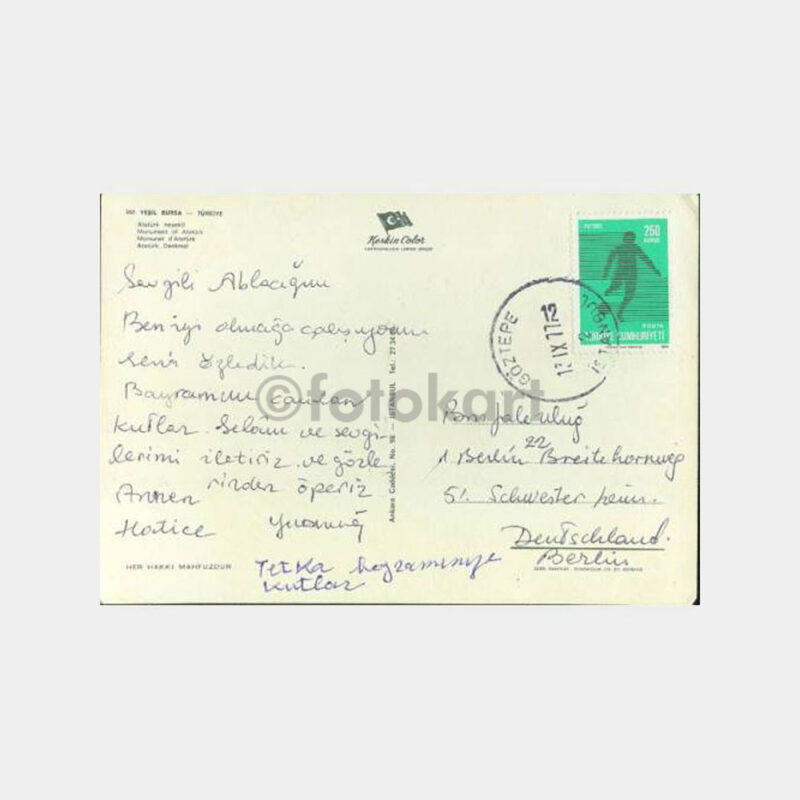 YEŞİL BURSA — TÜRKİYE
Atatürk heykeli
Monument of Atatürk
Monument d'Atatürk
Atatürk Denkmal
Keskin Color
Sevgili Ablacığım
Ben iyi olmağa çalışıyorum
seni özledik.
Bayramını candan
kutlar. Selâm ve sevgi
lerimi iletiriz ve gözle
rinden öperiz
Annen
Hatice
HER HAKKI MAHFUZDUR
Tetka bayramınıye
kutlar
Ankara Caddesi, No. 98 — İSTANBUL Tel.: 27
FUTBOL
250
KURUŞ
POSTA
TÜRKİYE CUMHURİYETİ
GÖZTEPE
İSTANBUL
IX 77 12
22
1 Berlin Breitehornweg
51 Schwester heim.
Deutschland.
Berlin
©fotokart